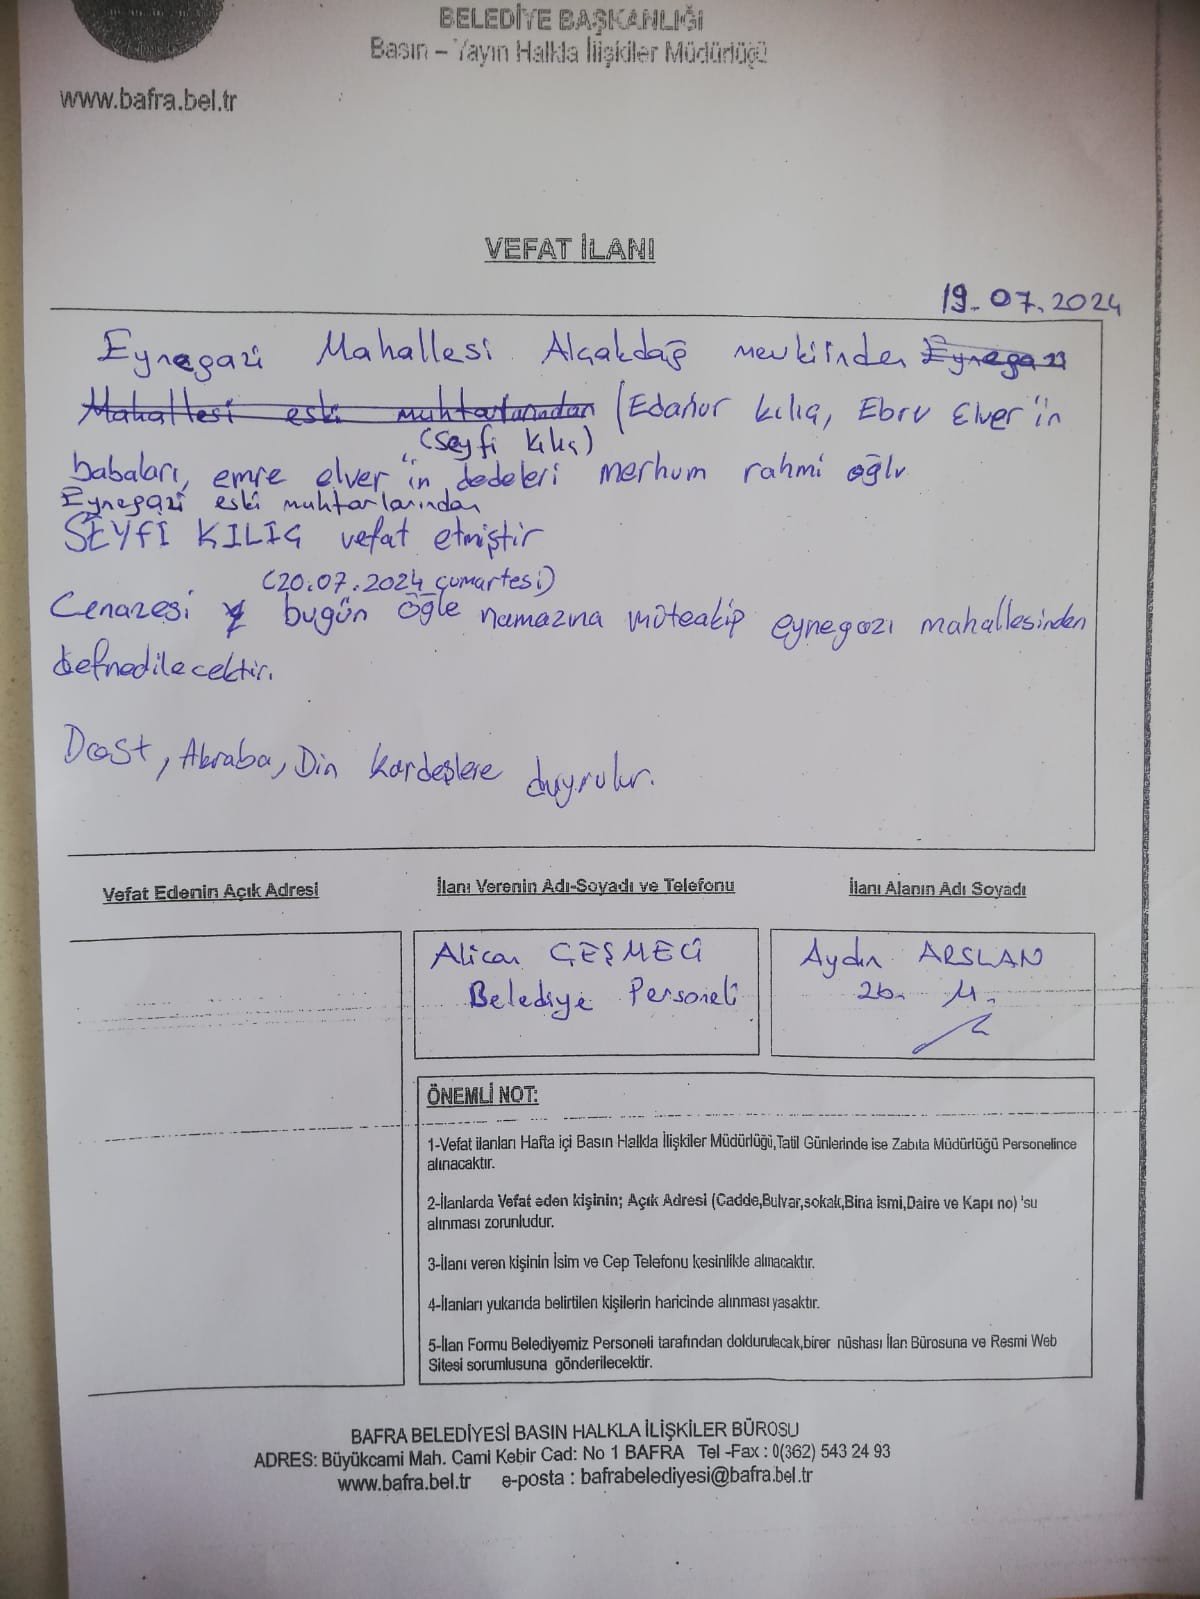 BELEDİYE BAŞKANLIĞI
Basın – Yayın Halkla İlişkiler Müdürlüğü
www.bafra.bel.tr
VEFAT İLANI
19.07.2024
Eynegazi Mahallesi Alçakdağ mevkiinden Eynegazi
Mahallesi eski muhtarlarından (Edanur kılıç, Ebru Elver'in
(Seyfi Kılıç)
babaları, emre elver'in dedeleri merhum rahmi oğlu
Eynegazi eski muhtarlarından
SEYFİ KILIÇ vefat etmiştir
(20.07.2024 cumartesi)
Cenazesi bugün öğle namazına müteakip eynegazi mahallesinden
defnedilecektir.
Dost, Akraba, Din kardeşlere duyrulur.
Vefat Edenin Açık Adresi
İlanı Verenin Adı-Soyadı ve Telefonu
İlanı Alanın Adı Soyadı
Alican ÇEŞMECİ
Belediye Personeli
Aydın ARSLAN
Zb. M.
ÖNEMLİ NOT:
1-Vefat ilanları Hafta içi Basın Halkla İlişkiler Müdürlüğü,Tatil Günlerinde ise Zabıta Müdürlüğü Personelince
alınacaktır.
2-İlanlarda Vefat eden kişinin; Açık Adresi (Cadde,Bulvar,sokak,Bina ismi,Daire ve Kapı no) 'su
alınması zorunludur.
3-İlanı veren kişinin İsim ve Cep Telefonu kesinlikle alınacaktır.
4-İlanları yukarıda belirtilen kişilerin haricinde alınması yasaktır.
5-İlan Formu Belediyemiz Personeli tarafından doldurulacak,birer nüshası İlan Bürosuna ve Resmi Web
Sitesi sorumlusuna gönderilecektir.
BAFRA BELEDİYESİ BASIN HALKLA İLİŞKİLER BÜROSU
ADRES: Büyükcami Mah. Cami Kebir Cad: No 1 BAFRA Tel -Fax : 0(362) 543 24 93
www.bafra.bel.tr e-posta : bafrabelediyesi@bafra.bel.tr